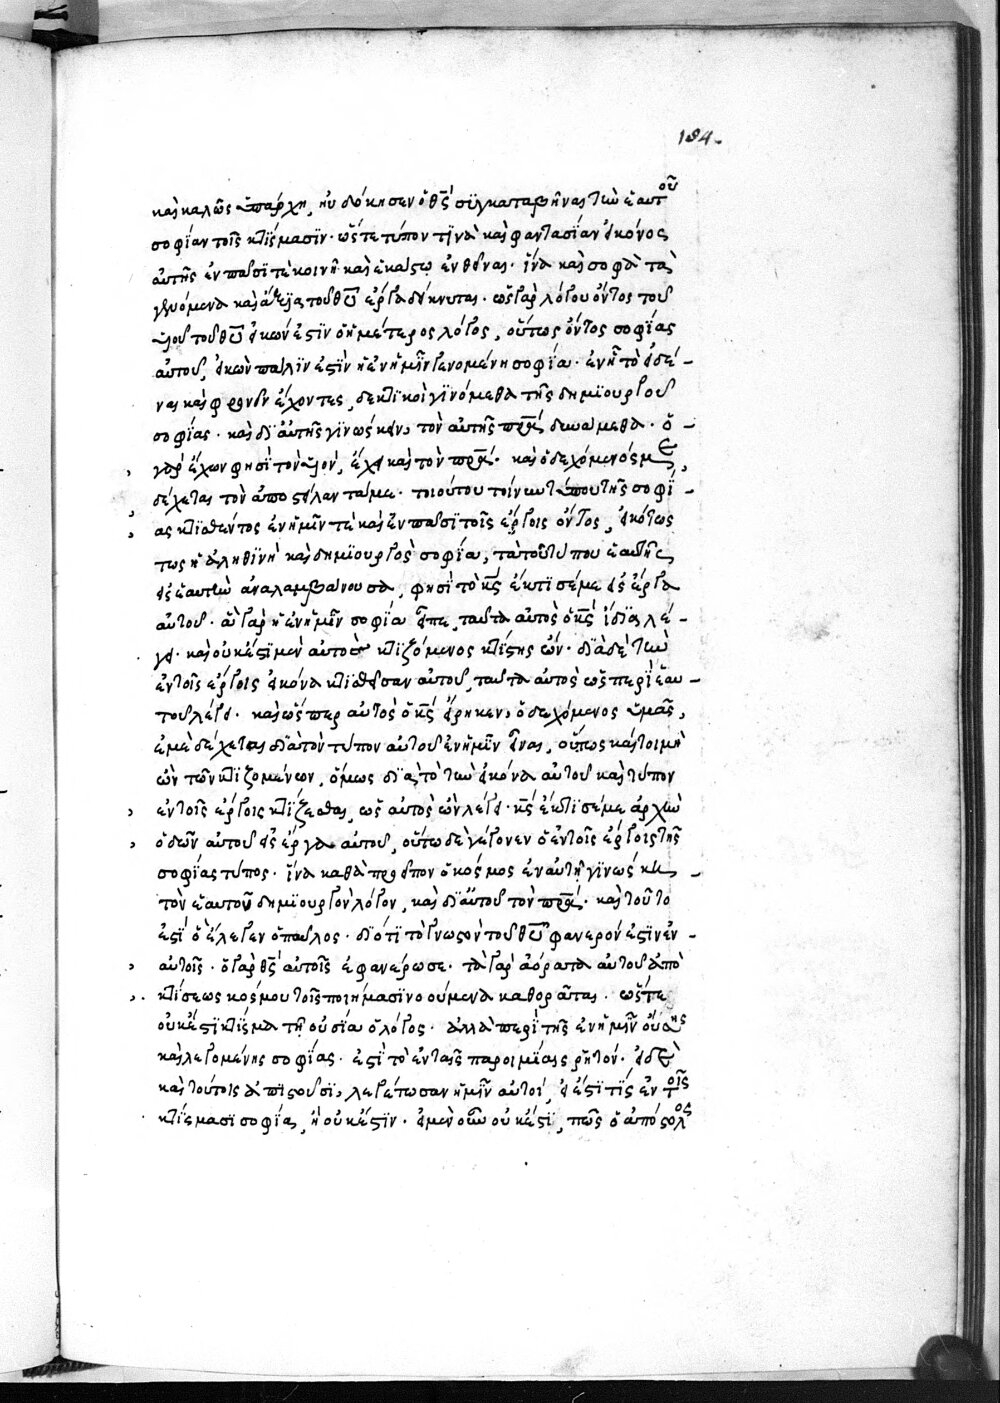 184.
καὶ καλῶς ὑπάρχη, ηὐδόκησεν ὁ θς̅ συγκαταβῆναι τὴν ἑαυτοῦ
σοφίαν τοῖς κτίσμασϊν· ὥστε τύπον τϊνὰ καὶ φαντασίαν εἰκόνος
αὐτῆς ἐν πᾶσϊ τὲ κοινῆ καὶ ἑκάστω ἐνθεῖναι· ἵνα καὶ σοφὰ τὰ
γενόμενα καὶ ἄξϊα τοῦ θυ̅ ἔργα δείκνυται· ὡς γὰρ λόγου ὄντος τοῦ
υἱοῦ τοῦ θυ̅ εἰκών ἐστϊν ὁ ἡμέτερος λόγος, οὕτως ὄντος σοφίας
αὐτοῦ, εἰκὼν πάλϊν ἐστϊν ἡ ἐν ἡμῖν γενομένη σοφία· ἐν ἧ τὸ εἰδέ-
ναι καὶ φρονεῖν ἔχοντες, δεκτϊκοὶ γϊνόμεθα τῆς δημϊουργοῦ
σοφίας· καὶ δϊ' αὐτῆς γϊνώσκειν, τὸν αὐτῆς πρα̅ δυνάμεθα· ὁ-
γὰρ ἔχων φησϊ τὸν υἱόν, ἔχει καὶ τὸν πρα̅· καὶ ὁ δεχόμενός με,
δέχεται τὸν ἀποστείλαντά με· τοιούτου τοίνυν τύπου τῆς σοφί-
ας κτϊσθέντος ἐν ἡμῖν τὲ καὶ ἐν πᾶσϊ τοῖς ἔργοις ὄντος, εἰκότως
τως ἡ ἀληθϊνὴ καὶ δημϊουργὸς σοφία, τὰ τοῦ τύπου ἑαυτῆς
εἰς ἑαυτὴν ἀναλαμβάνουσα, φησϊ τὸ κς̅ ἔκτϊσέ με εἰς ἔργα
αὐτοῦ· ἃ γὰρ ἡ ἐν ἡμῖν σοφία εἶπε, ταῦτα αὐτὸς ὁ κς̅ ἴδϊα λέ-
γει· καὶ οὐκ ἔστϊ μὲν αὐτὸς κτϊζόμενος κτίστης ὤν· δϊὰ δὲ τὴν
ἐν τοῖς ἔργοις εἰκόνα κτϊσθεῖσαν αὐτοῦ, ταῦτα αὐτὸς ὡς περϊ ἑαυ-
τοῦ λέγει· καὶ ὥσπερ αὐτὸς ὁ κς̅ εἴρηκεν, ὁ δεχόμενος ὑμᾶς,
ἐμὲ δέχεται δϊὰ τὸν τύπον αὐτοῦ ἐν ἡμῖν εἶναι, οὕτως καίτοι μὴ
ὢν τῶν κτϊζομένων, ὅμως δϊὰ τὸ τὴν εἰκόνα αὐτοῦ καὶ τύπον
ἐν τοῖς ἔργοις κτίζεσθαι, ὡς αὐτὸς ὢν λέγει· κς̅ ἔκτϊσέ με ἀρχὴν
ὁδῶν αὐτοῦ εἰς ἔργα αὐτοῦ, οὕτω δὲ γέγονεν ὁ ἐν τοῖς ἔργοις τῆς
σοφίας τύπος· ἵνα καθὰ προεῖπον ὁ κόσμος ἐν αὐτῆ γϊνώσκη-
τὸν ἑαυτοῦ δημϊουργὸν λόγον, καὶ δϊ' αὐτοῦ τὸν πρα̅· καὶ τοῦτο
ἐστϊ ὃ ἔλεγεν ὁ παῦλος· δϊότϊ τὸ γνωστὸν τοῦ θυ̅ φανερόν ἐστϊν ἐν-
αὐτοῖς· ὁ γὰρ θς̅ αὐτοῖς ἐφανέρωσε· τὰ γὰρ ἀόρατα αὐτοῦ ἀπὸ
κτίσεως κόσμου τοῖς ποιήμασϊ νοούμενα καθορᾶται· ὥστε
οὐκ ἔστϊ κτίσμα τῆ οὐσία ὁ λόγος· ἀλλὰ περϊ τῆς ἐν ἡμῖν οὔσης
καὶ λεγομένης σοφίας· ἐστϊ τὸ ἐν ταῖς παροιμίαις ρητόν· εἰ δὲ
καὶ τούτοις ἀπϊστοῦσϊ, λεγέτωσαν ἡμῖν αὐτοί, εἰ ἔστϊ τίς ἐν τοῖς
κτίσμασϊ σοφία, ἢ οὐκ ἔστϊν· εἰ μὲν οὖν οὐκ ἔστϊ, πῶς ὁ ἀπόστολος